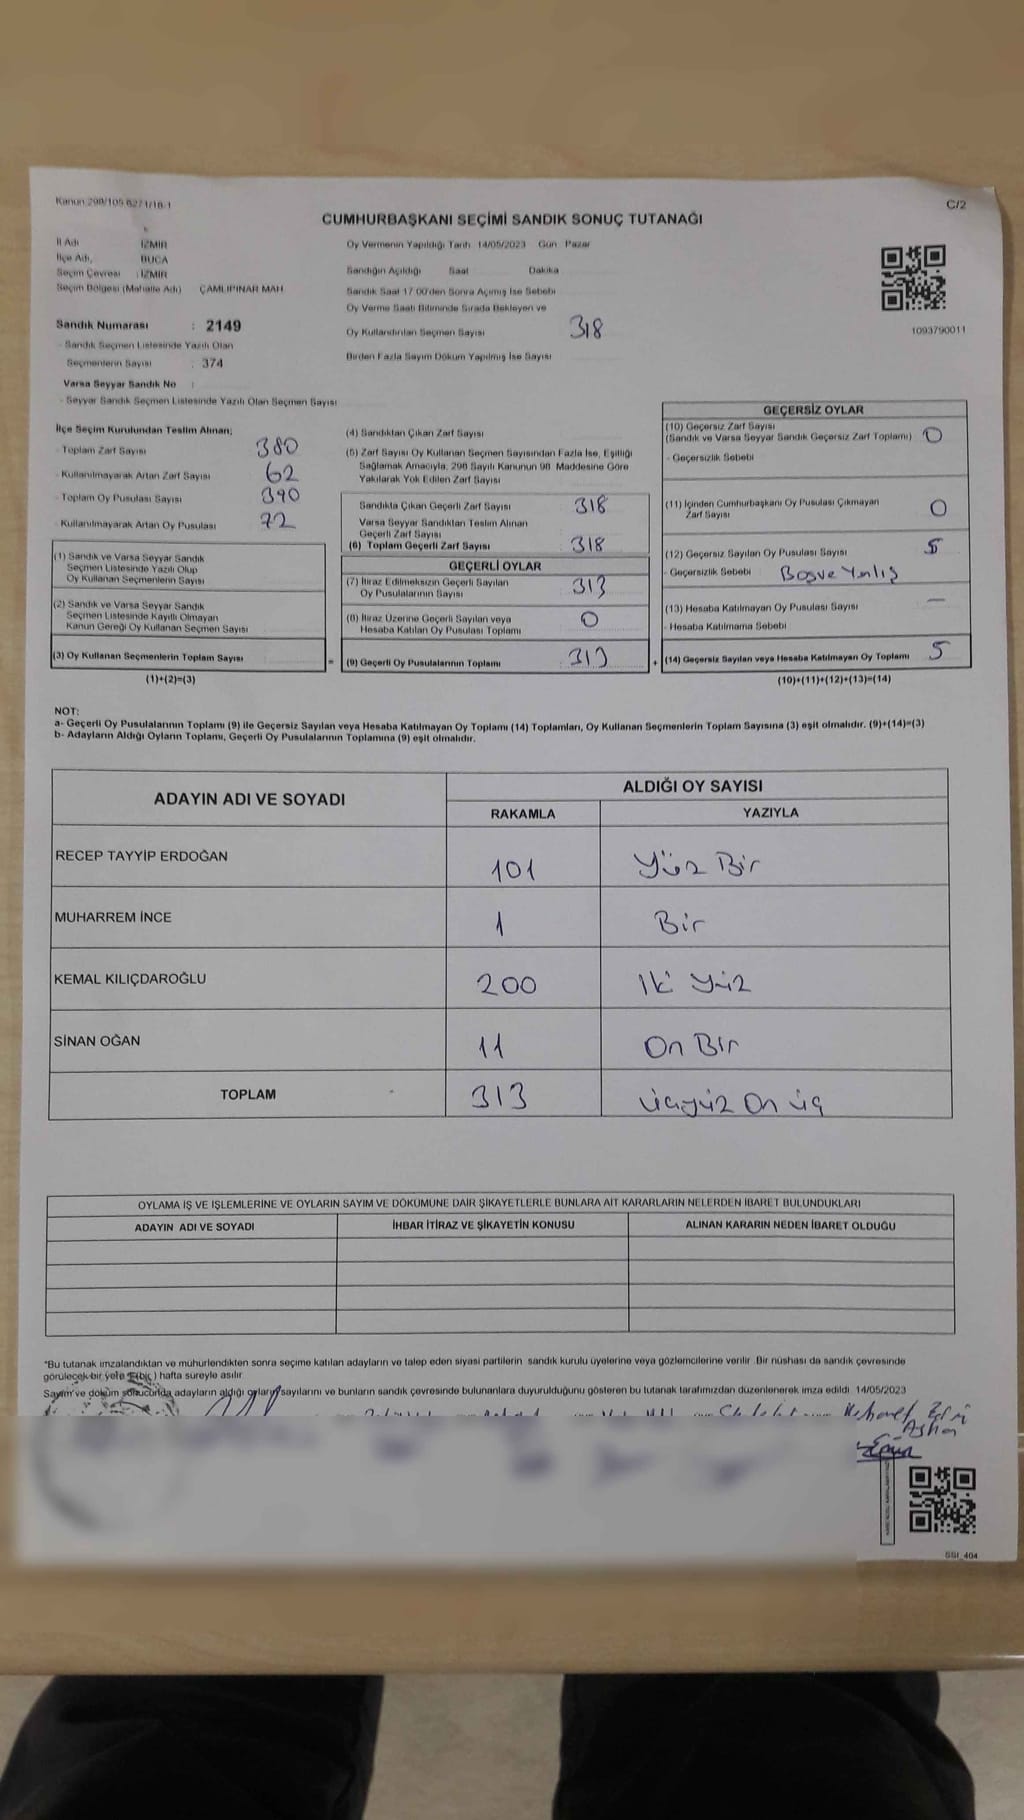 Kanun 298/105
C/2
CUMHURBAŞKANI SEÇİMİ SANDIK SONUÇ TUTANAĞI
İl Adı İZMİR
İlçe Adı, BUCA
Seçim Çevresi : İZMİR
Seçim Bölgesi (Mahalle Adı) ÇAMLIPINAR MAH
Sandık Numarası : 2149
- Sandık Seçmen Listesinde Yazılı Olan
Seçmenlerin Sayısı : 374
Varsa Seyyar Sandık No :
- Seyyar Sandık Seçmen Listesinde Yazılı Olan Seçmen Sayısı
Oy Vermenin Yapıldığı Tarih 14/05/2023 Gün Pazar
Sandığın Açıldığı Saat Dakika
Sandık Saat 17:00'den Sonra Açılmış İse Sebebi
Oy Verme Saati Bitiminde Sırada Bekleyen ve
Oy Kullandırılan Seçmen Sayısı 318
Birden Fazla Sayım Döküm Yapılmış İse Sayısı
1093790011
İlçe Seçim Kurulundan Teslim Alınan;
- Toplam Zarf Sayısı 380
- Kullanılmayarak Artan Zarf Sayısı 62
- Toplam Oy Pusulası Sayısı 390
- Kullanılmayarak Artan Oy Pusulası 72
(1) Sandık ve Varsa Seyyar Sandık
Seçmen Listesinde Yazılı Olup
Oy Kullanan Seçmenlerin Sayısı
(2) Sandık ve Varsa Seyyar Sandık
Seçmen Listesinde Kayıtlı Olmayan
Kanun Gereği Oy Kullanan Seçmen Sayısı
(3) Oy Kullanan Seçmenlerin Toplam Sayısı =
(1)+(2)=(3)
(4) Sandıktan Çıkan Zarf Sayısı
(5) Zarf Sayısı Oy Kullanan Seçmen Sayısından Fazla İse, Eşitliği
Sağlamak Amacıyla, 298 Sayılı Kanunun 98. Maddesine Göre
Yakılarak Yok Edilen Zarf Sayısı
Sandıkta Çıkan Geçerli Zarf Sayısı 318
Varsa Seyyar Sandıktan Teslim Alınan
Geçerli Zarf Sayısı
(6) Toplam Geçerli Zarf Sayısı 318
GEÇERLİ OYLAR
(7) İtiraz Edilmeksizin Geçerli Sayılan
Oy Pusulalarının Sayısı 313
(8) İtiraz Üzerine Geçerli Sayılan veya
Hesaba Katılan Oy Pusulası Toplamı 0
(9) Geçerli Oy Pusulalarının Toplamı 313 +
GEÇERSİZ OYLAR
(10) Geçersiz Zarf Sayısı
(Sandık ve Varsa Seyyar Sandık Geçersiz Zarf Toplamı) 0
- Geçersizlik Sebebi
(11) İçinden Cumhurbaşkanı Oy Pusulası Çıkmayan
Zarf Sayısı 0
(12) Geçersiz Sayılan Oy Pusulası Sayısı 5
- Geçersizlik Sebebi Boş ve Yanlış
(13) Hesaba Katılmayan Oy Pusulası Sayısı —
- Hesaba Katılmama Sebebi
(14) Geçersiz Sayılan veya Hesaba Katılmayan Oy Toplamı 5
(10)+(11)+(12)+(13)=(14)
NOT:
a- Geçerli Oy Pusulalarının Toplamı (9) ile Geçersiz Sayılan veya Hesaba Katılmayan Oy Toplamı (14) Toplamları, Oy Kullanan Seçmenlerin Toplam Sayısına (3) eşit olmalıdır. (9)+(14)=(3)
b- Adayların Aldığı Oyların Toplamı, Geçerli Oy Pusulalarının Toplamına (9) eşit olmalıdır.
ADAYIN ADI VE SOYADI
ALDIĞI OY SAYISI
RAKAMLA YAZIYLA
RECEP TAYYİP ERDOĞAN 101 Yüz Bir
MUHARREM İNCE 1 Bir
KEMAL KILIÇDAROĞLU 200 İki yüz
SİNAN OĞAN 11 On Bir
TOPLAM 313 üçyüz On üç
OYLAMA İŞ VE İŞLEMLERİNE VE OYLARIN SAYIM VE DÖKÜMÜNE DAİR ŞİKAYETLERLE BUNLARA AİT KARARLARIN NELERDEN İBARET BULUNDUKLARI
ADAYIN ADI VE SOYADI İHBAR İTİRAZ VE ŞİKAYETİN KONUSU ALINAN KARARIN NEDEN İBARET OLDUĞU
*Bu tutanak imzalandıktan ve mühürlendikten sonra seçime katılan adayların ve talep eden siyasi partilerin sandık kurulu üyelerine veya gözlemcilerine verilir. Bir nüshası da sandık çevresinde
görülecek bir yere 1(bir) hafta süreyle asılır
Sayım ve döküm sonucunda adayların aldığı oyların sayılarını ve bunların sandık çevresinde bulunanlara duyurulduğunu gösteren bu tutanak tarafımızdan düzenlenerek imza edildi. 14/05/2023
SSI_404